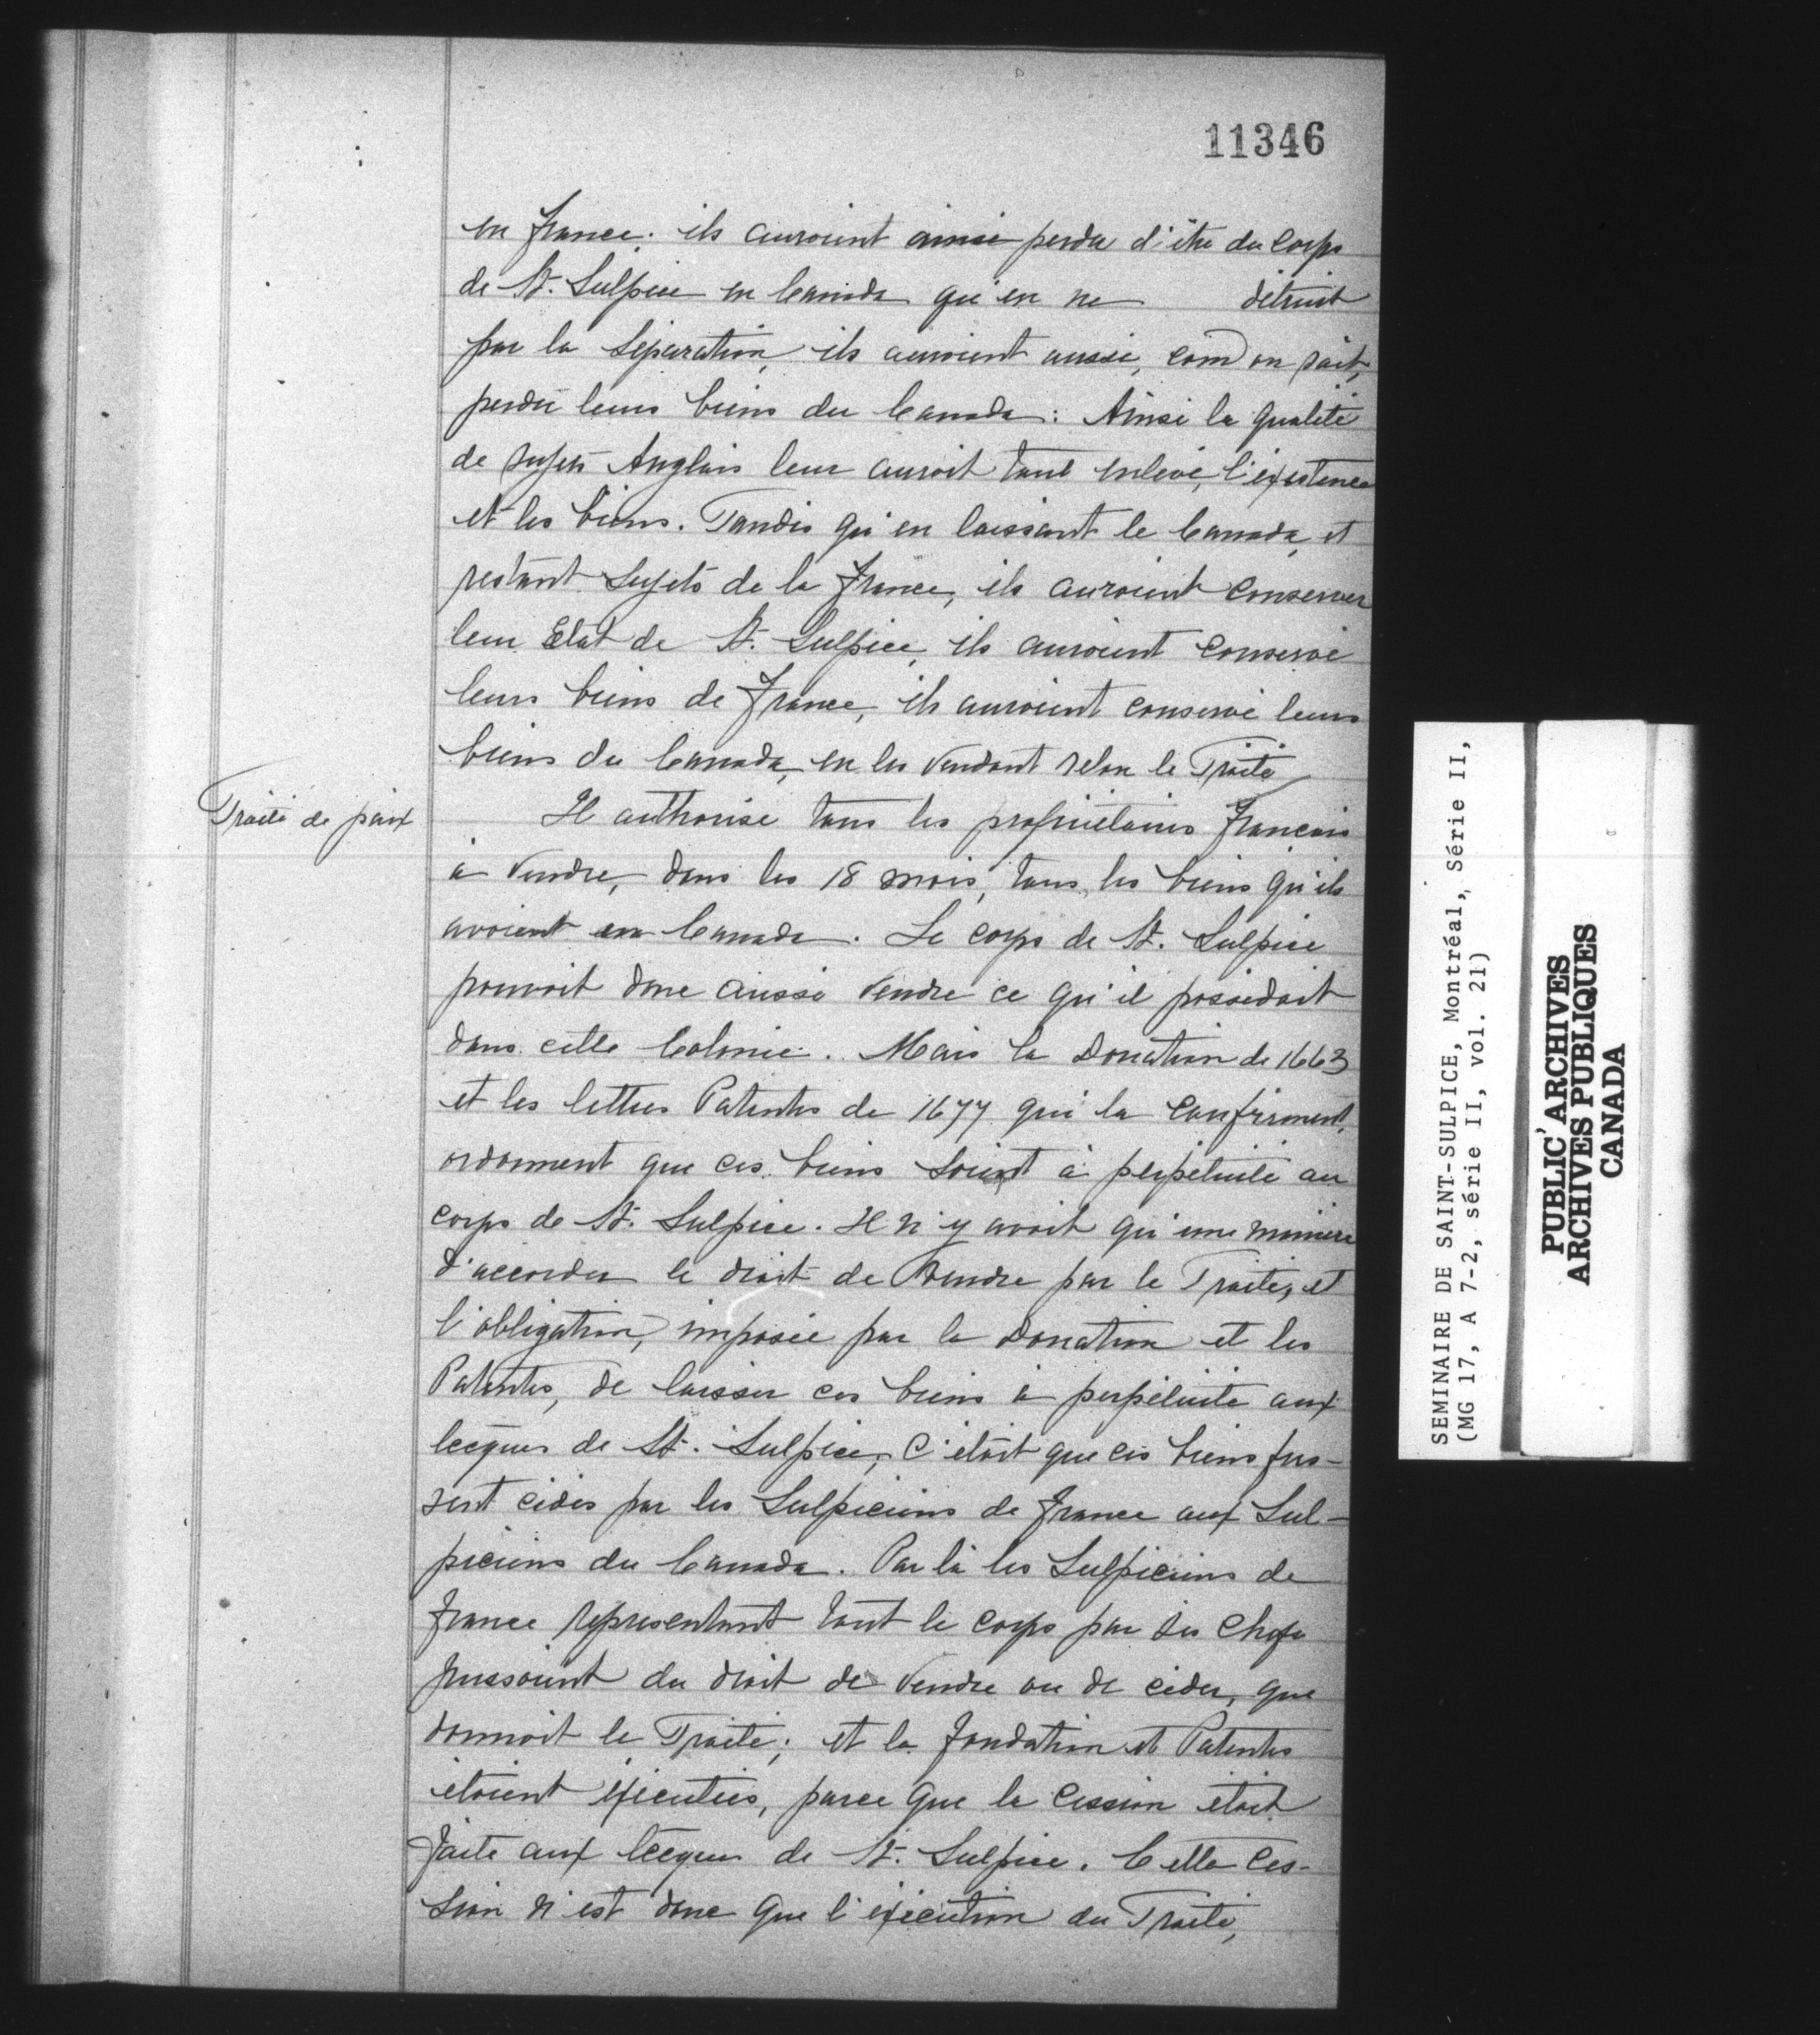 11346
en France; ils auroient ainsi perdu d'être du Corps
de St. Sulpice en Canada qu'en ne détruit
par la Séparation, ils auroient aussi, com on sait,
perdu leurs biens du Canada: Ainsi la qualité
de sujets Anglais leur auroit tout enlevé, l'éxistence
et les biens. Tandis qu'en laissant le Canada, et
restant Sujets de la France, ils auroient Conserver
leur Etat de St. Sulpice, ils auroient Conservé
leurs biens de France, ils auroient conservé leurs
biens du Canada, en les vendant selon le Traité
Traité de paix
Il authorise tous les propriétaires Français
à Vendre, dans les 18 mois, tous les biens qu'ils
avoient en Canada. Le corps de St. Sulpice
pouvoit donc aussi Vendre ce qu'il possédoit
dans cette Colonie. Mais la Donation de 1663
et les lettres Patentes de 1677 qui la Confirment,
ordonnent que ces biens soient à perpétuité au
corps de St. Sulpice. Il n'y avoit qu'une manière
d'accorder le droit de Vendre par le Traité, et
l'obligation, imposée par la Donation et les
Patentes, de laisser ces biens à perpétuité aux
Ecčques de St. Sulpice, C'étoit que ces biens fus-
sent cédés par les Sulpiciens de France aux Sul-
piciens du Canada. Par là les Sulpiciens de
France représentant tout le Corps par ses Chefs
jussoient du droit de Vendre ou de céder, que
donnoit le Traité; et la fondation et Patentes
étoient éxécutées, parce que la Cession étoit
faite aux Eccques de St. Sulpice. Cette Ces-
sion n'est donc que l'éxécution du Traité,
SEMINAIRE DE SAINT-SULPICE, Montréal, Série II,
(MG 17, A 7-2, série II, vol. 21)
PUBLIC ARCHIVES
ARCHIVES PUBLIQUES
CANADA